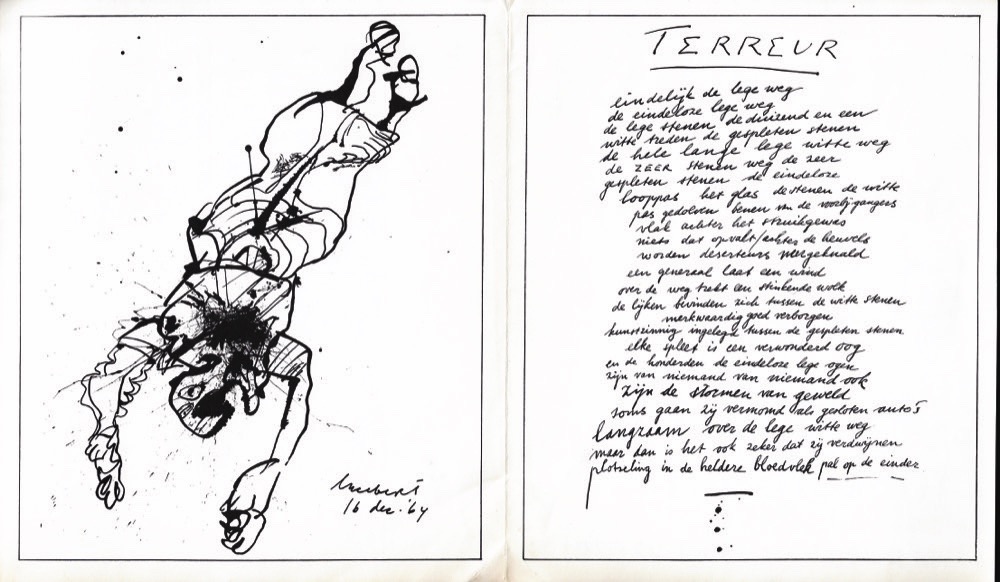 lucebert
16 dec. '64
TERREUR
eindelijk de lege weg
de eindeloze lege weg
de lege stenen de duizend en een
witte treden de gespleten stenen
de hele lange lege witte weg
de ZEER stenen weg de zeer
gespleten stenen de eindeloze
looppas het glas de stenen de witte
pas gedolven benen van de voorbijgangers
vlak achter het struikgewas
niets dat opvalt/achter de heuvels
worden deserteurs neergeknald
een generaal laat een wind
over de weg trekt een stinkende wolk
de lijken bevinden zich tussen de witte stenen
merkwaardig goed verborgen
kunstzinnig ingelegd tussen de gespleten stenen
elke spleet is een verwonderd oog
en de honderden de eindeloze lege ogen
zijn van niemand van niemand ook
zijn de stormen van geweld
soms gaan zij vermomd als gesloten auto's
langzaam over de lege witte weg
maar dan is het ook zeker dat zij verdwijnen
plotseling in de heldere bloedvlek pal op de einder